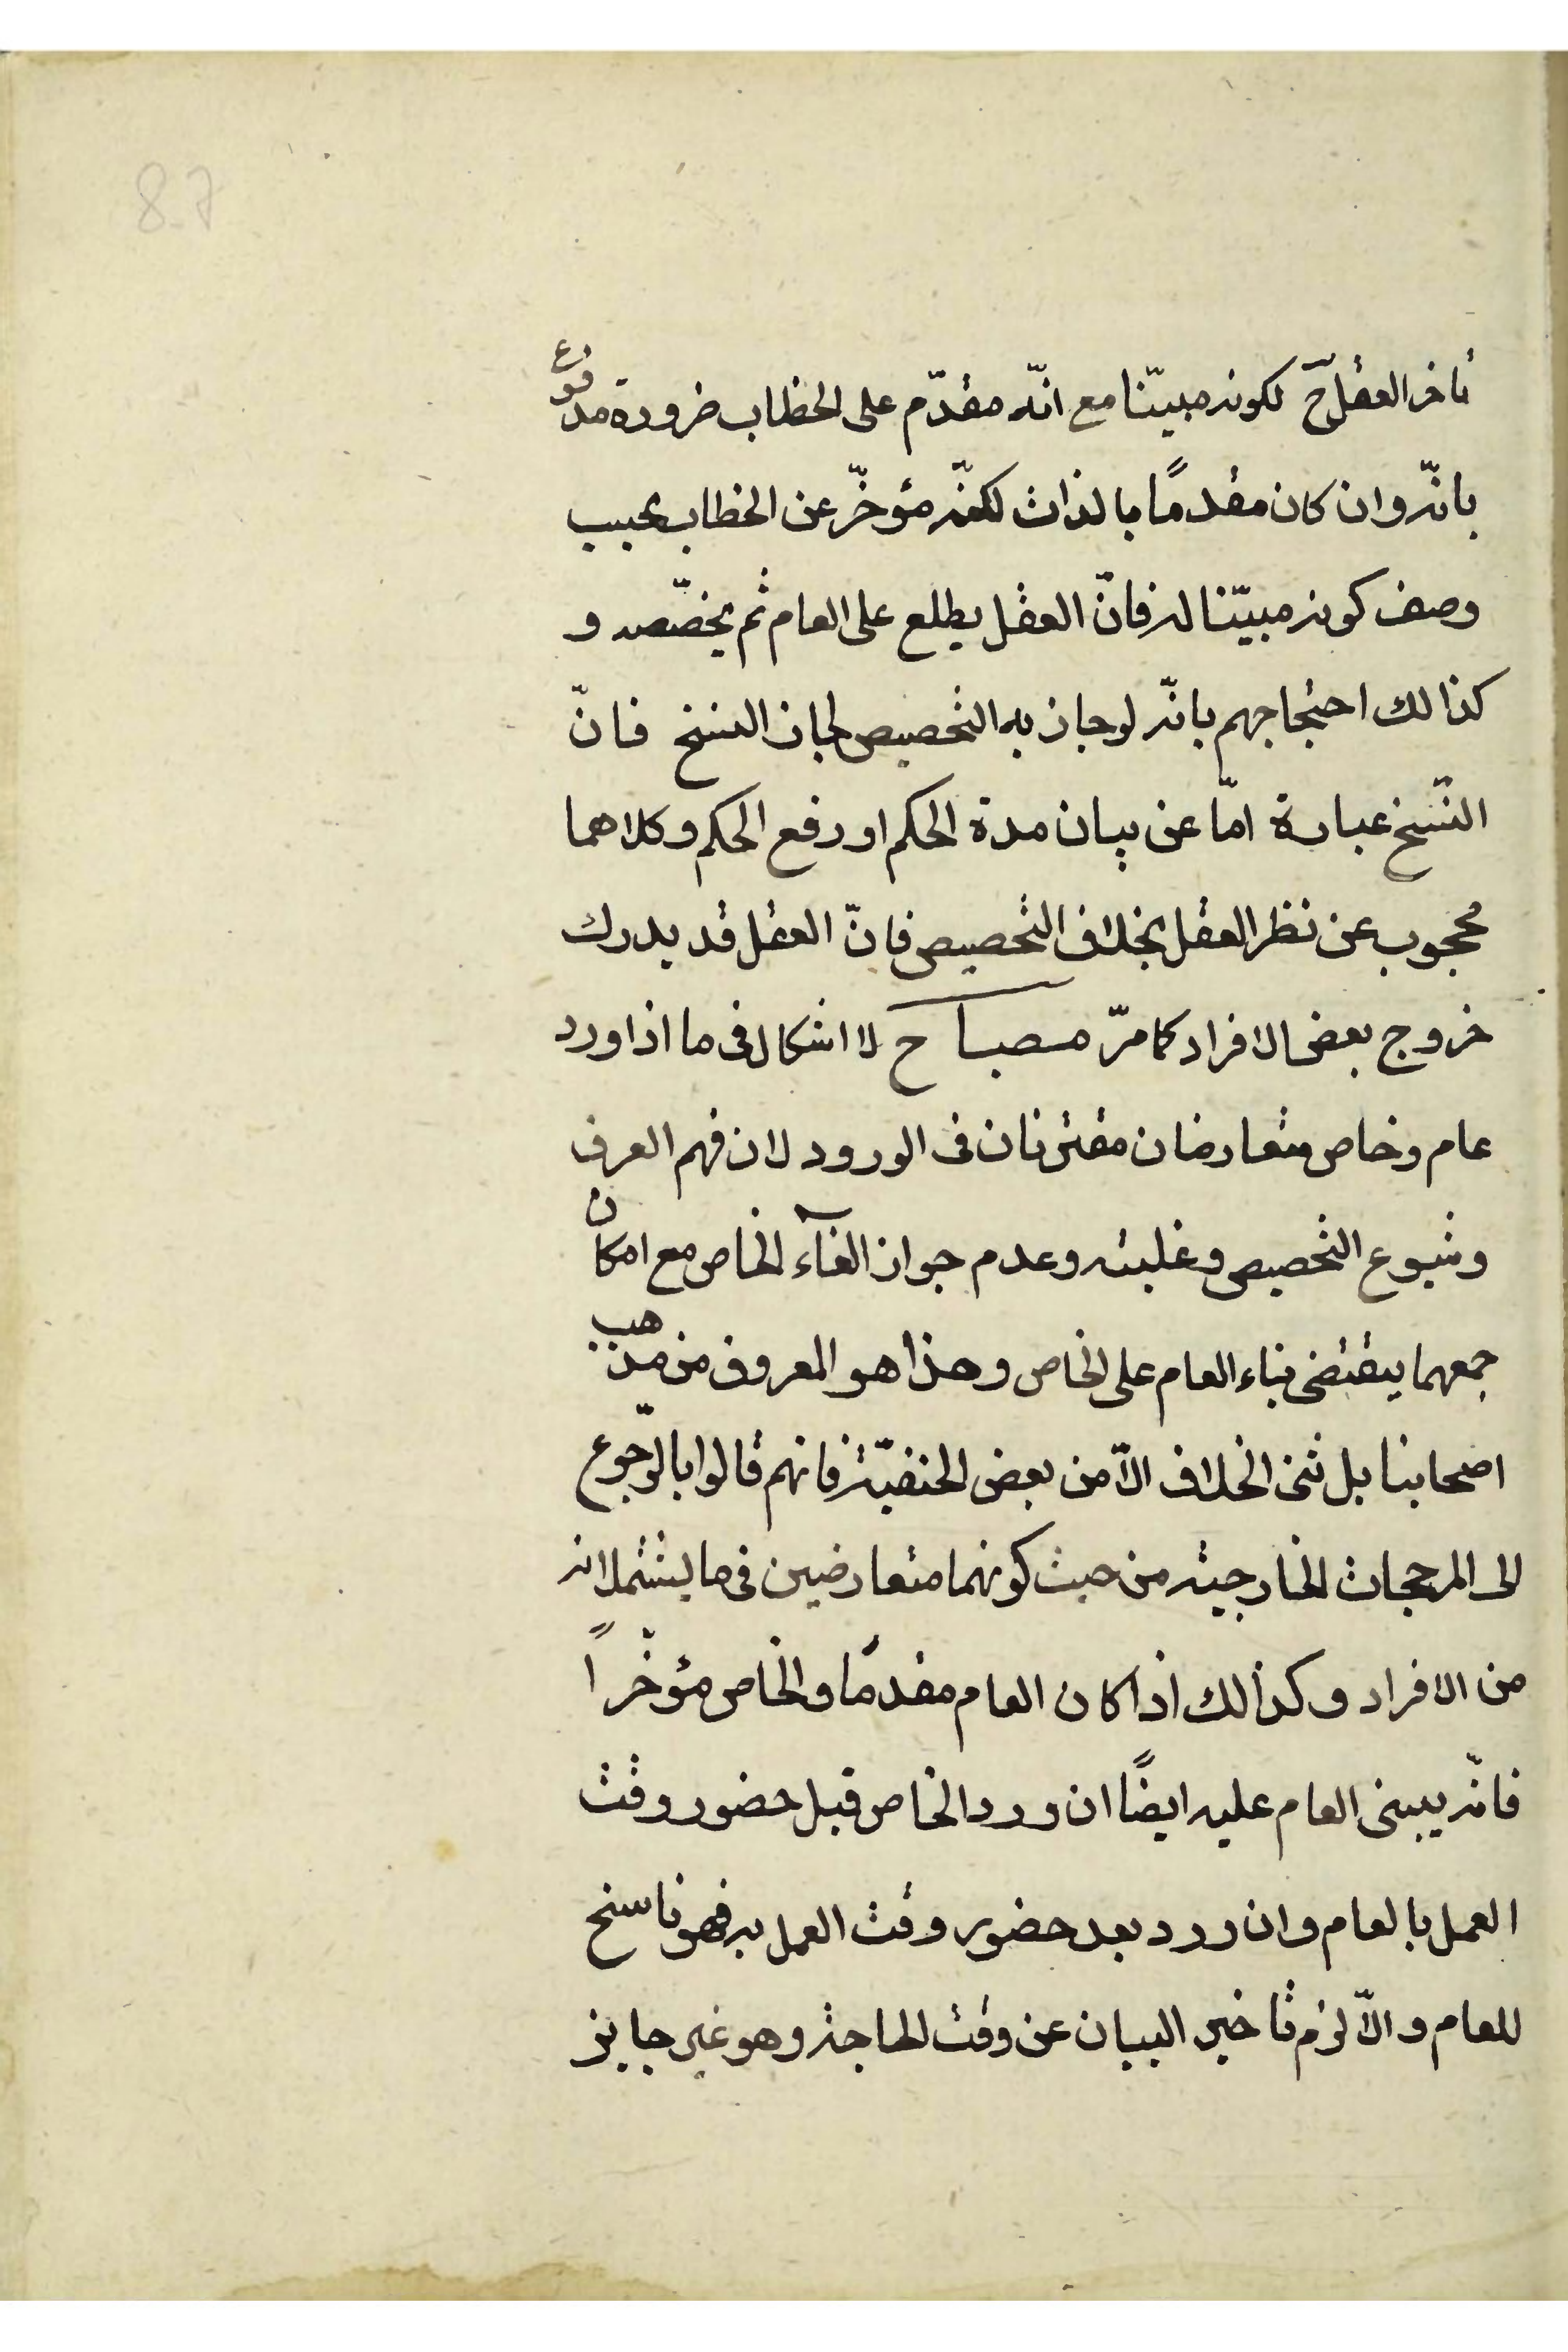 87
تاخر العقل ح لكونه مبيّنا مع انّه مقدّم على الخطاب ضرورة مدفوع
بانّه وان كان مقدماً بالذات لكنّه مؤخّر عن الخطاب بحسب
وصف كونه مبيّنا له فانّ العقل يطلع على العام ثم يخصّصه و
كذالك احتجاجهم بانّه لو جاز به التخصيص لجاز النسخ فانّ
النّسخ عبارة امّا عن بيان مدة الحكم او رفع الحكم وكلاهما
محجوب عن نظر العقل بخلاف التخصيص فانّ العقل قد يدرك
خروج بعض الافراد كما مرّ مصباح لا اشكال فى ما اذا ورد
عام وخاص متعارضان مقترنان فى الورود لان فهم العرف
وشيوع التخصيص وغلبته وعدم جواز الغآء الخاص مع امكان
جمعهما يقتضى بناء العام على الخاص وهذا هو المعروف من مذهب
اصحابنا بل نفى الخلاف الّا من بعض الحنفيّة فانهم قالوا بالرّجوع
الى المرجحات الخارجيته من حيث كونهما متعارضين فى ما يشتملانه
من الافراد وكذالك اذا كان العام مقدمًا والخاص مؤخّراً
فانّه يبنى العام عليه ايضًا ان ورد الخاص قبل حضور وقت
العمل بالعام وان ورد بعد حضور وقت العمل به فهو ناسخ
للعام والّا لزم تاخير البيان عن وقت الحاجة وهو غير جايز